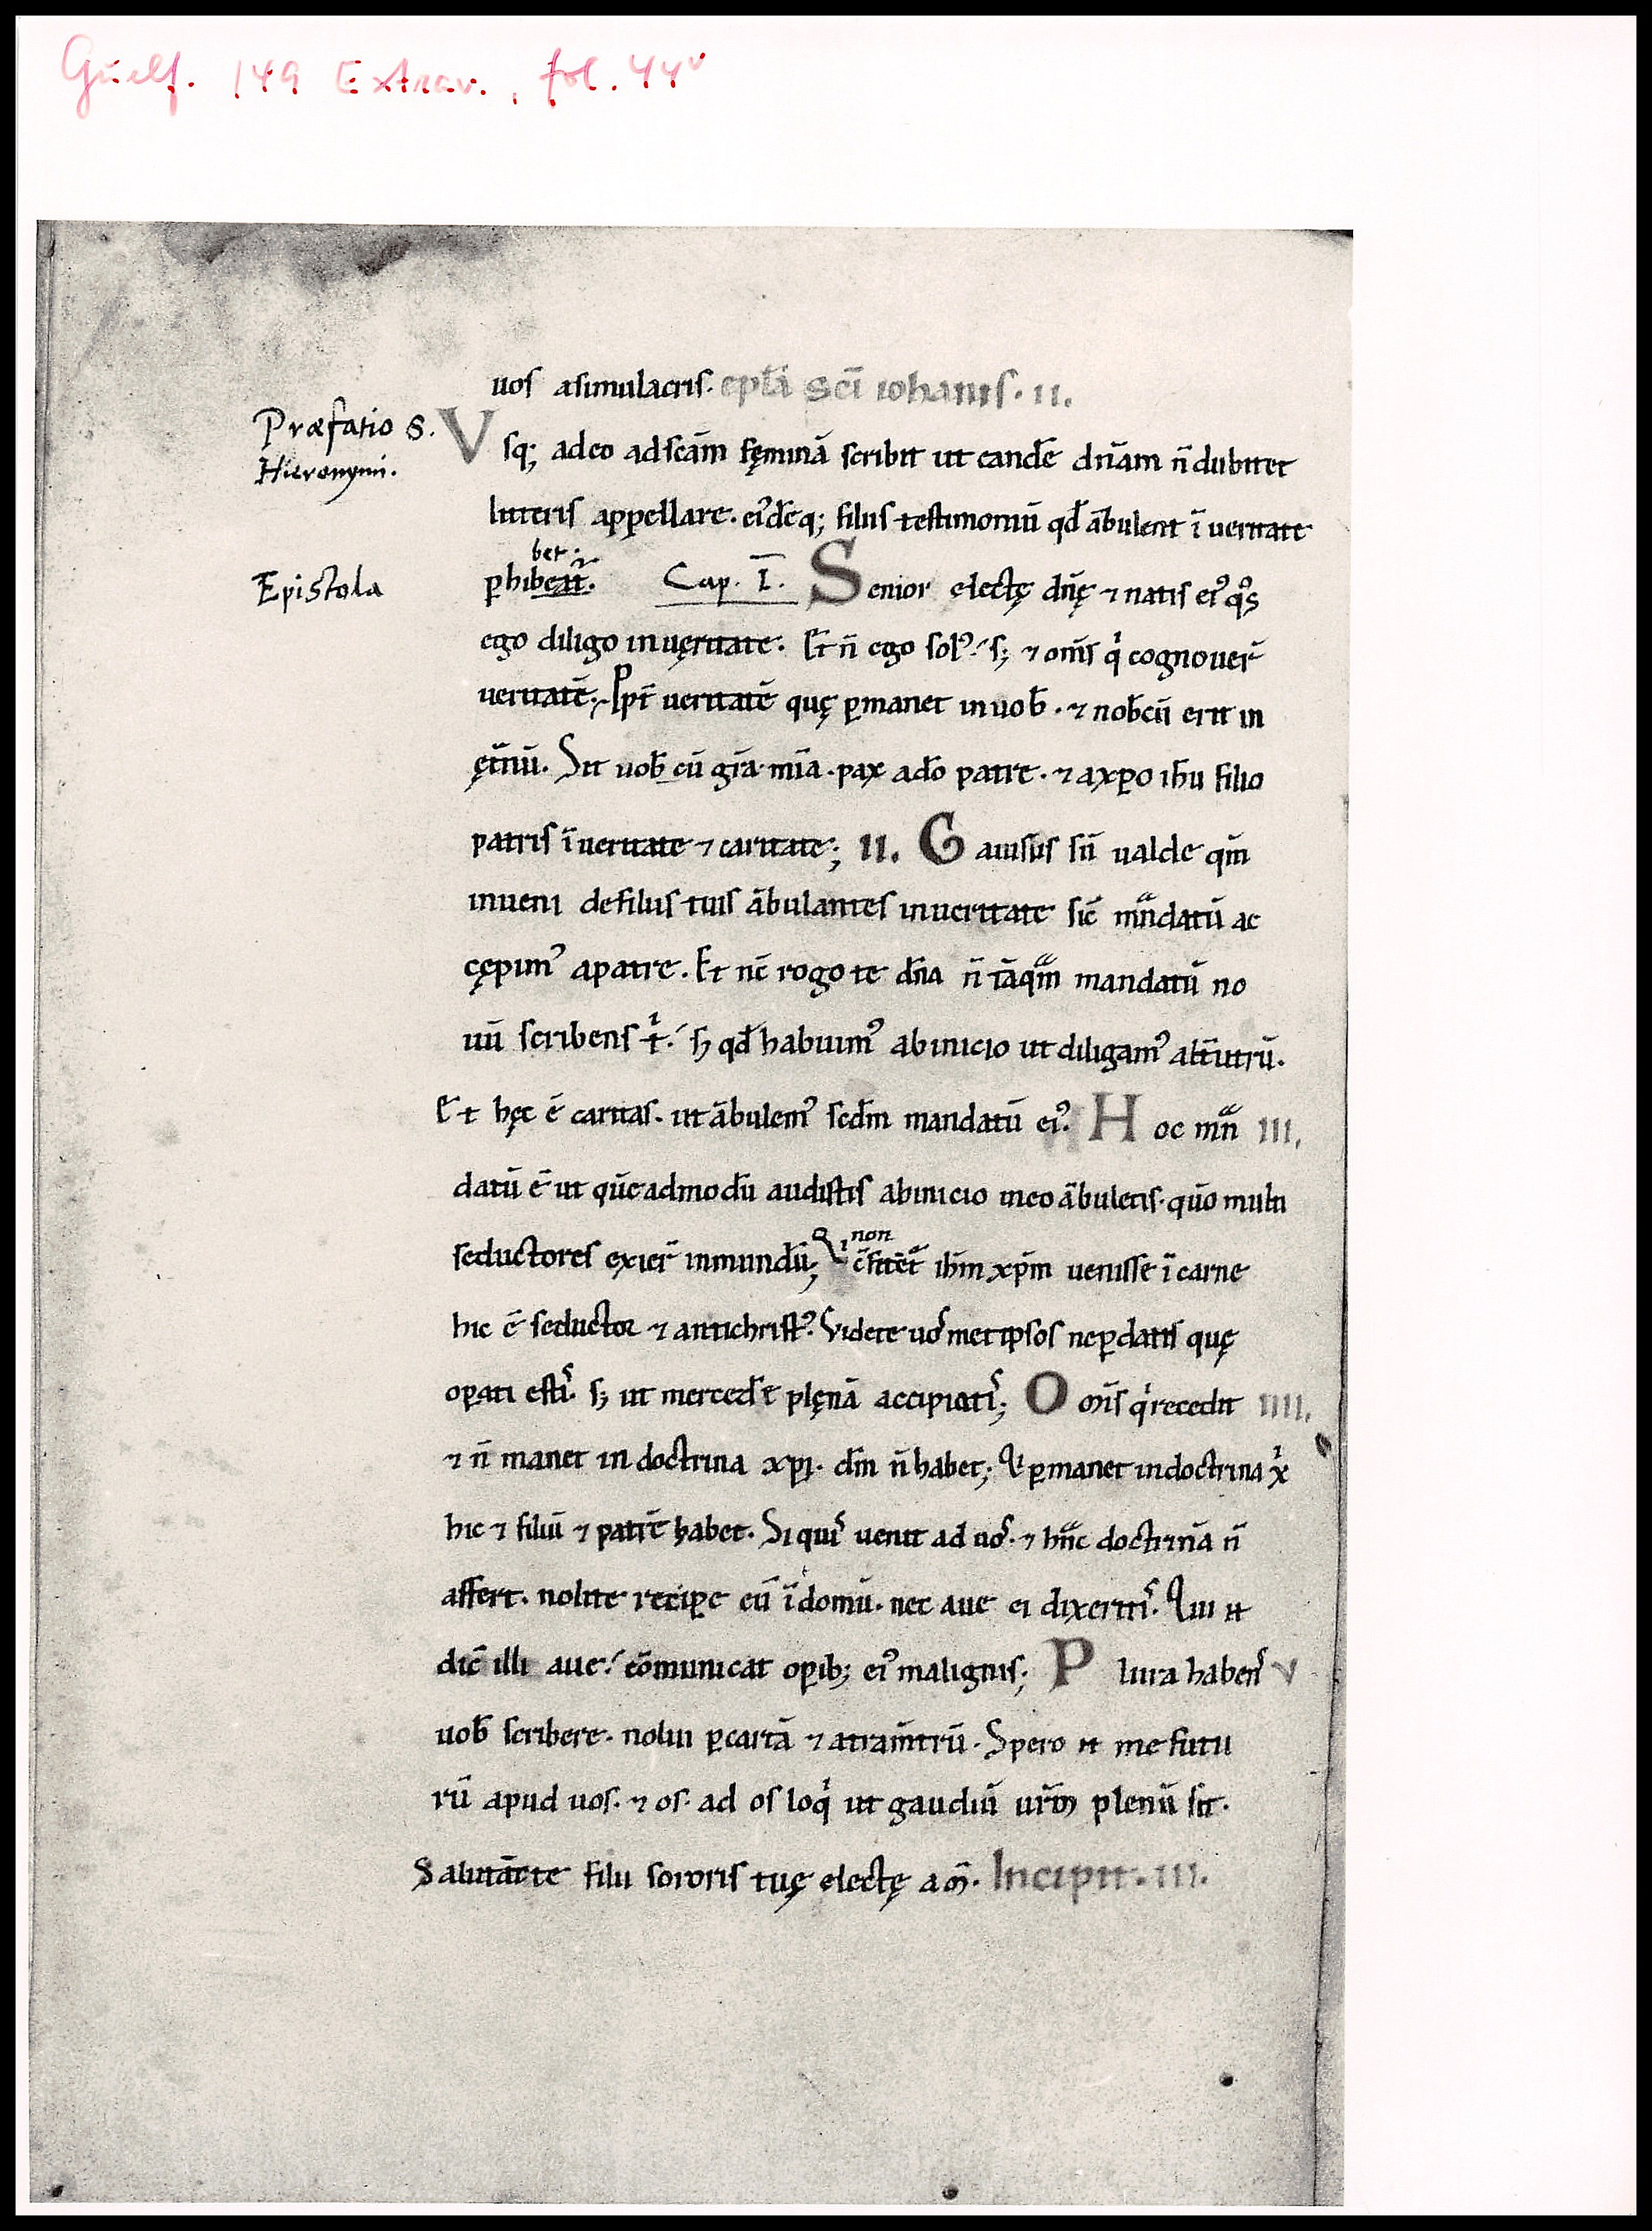 Guelf. 149 Extrav., fol. 44v
uos asimulacris. epła sc̄i iohanis. II.
Præfatio S.
Hieronymi.
Vsq; adeo adscām fęminā scribit ut eandē dn̄am n̄ dubitet
litteris appellare. ei᾿dēq; filiis testimoniū qđ ābulent ī ueritate
bet.
Epistola
p̱hibeat̃. Cap. I. Senior electę dn̄ę ⁊ natis ei᾿ qͦs
ego diligo inuęritate. Et n̄ ego sol᾿. s; ⁊ om̄s qͥ cognouer̃
ueritatē. Ppt̄ ueritatē quę p̱manet inuob̄. ⁊ nob̄cū erit in
ęt̄nū. Sit uob̄ cū gr̄a mīa. pax ado patre. ⁊ axp̄o ihu filio
patris ī ueritate ⁊ caritate; II. Gauisus sū ualde qm̄
inueni defiliis tuis ābulantes inueritate sic̄ mͣndatū ac
cępim᾿ apatre. Et nc̄ rogo te dn̄a n̄ tāqͣm mandatū no
uū scribens tͥ. s; qđ habuim᾿ abinicio ut diligam᾿ alt̄utrū.
Et hęc ē caritas. ut ābulem᾿ scđm mandatū ei᾿. Hoc mͣn III.
datū ē ut quēadmodū audistis abinicio ineo ābuletis. qūo multi
non
seductores exier̃ inmundū; Qͥ c̄fitēt̃ ihm̄ xp̄m uenisse ī carne
hic ē seductor ⁊ antichrist᾿. Videte uosmetipsos nep̱datis quę
op̱ati estis. s; ut mercedē plęnā accipiatis; Om̄s qͥ recedit IIII.
⁊ n̄ manet in doctrina xp̄i. dm̄ n̄ habet; Qͥ p̱manet indoctrina xͥ
hic ⁊ filiū ⁊ patrē habet. Si quis uenit ad uos. ⁊ hͣnc doctrinā n̄
affert. nolite recip̱e eū ī domū. nec aue ei dixeritis. Qui n̄
dic̄ illi aue. cōmunicat op̱ib; ei᾿ malignis; Plura habens V
uob̄ scribere. nolui p̱cartā ⁊ atram̄trū. Spero n̄ me futu
rū apud uos. ⁊ os. ad os loqͥ ut gaudiū ur̄m plenū sit.
Salutācte filii sororis tuę electę am̄. Incipit. III.